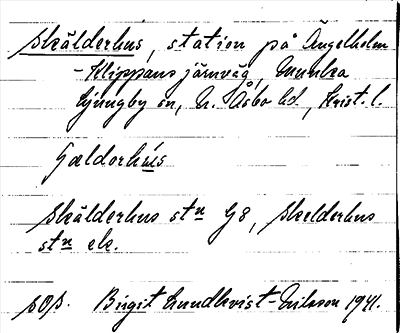 Skälderhus, station på Ängelholm
-Klippans järnväg, Munka
Ljungby sn, N. Åsbo hd, Krist. l.
Skälderhus stn G8, Skelderhus
stn ek.
sOs. Birgit Lundkvist-Eriksson 1941.